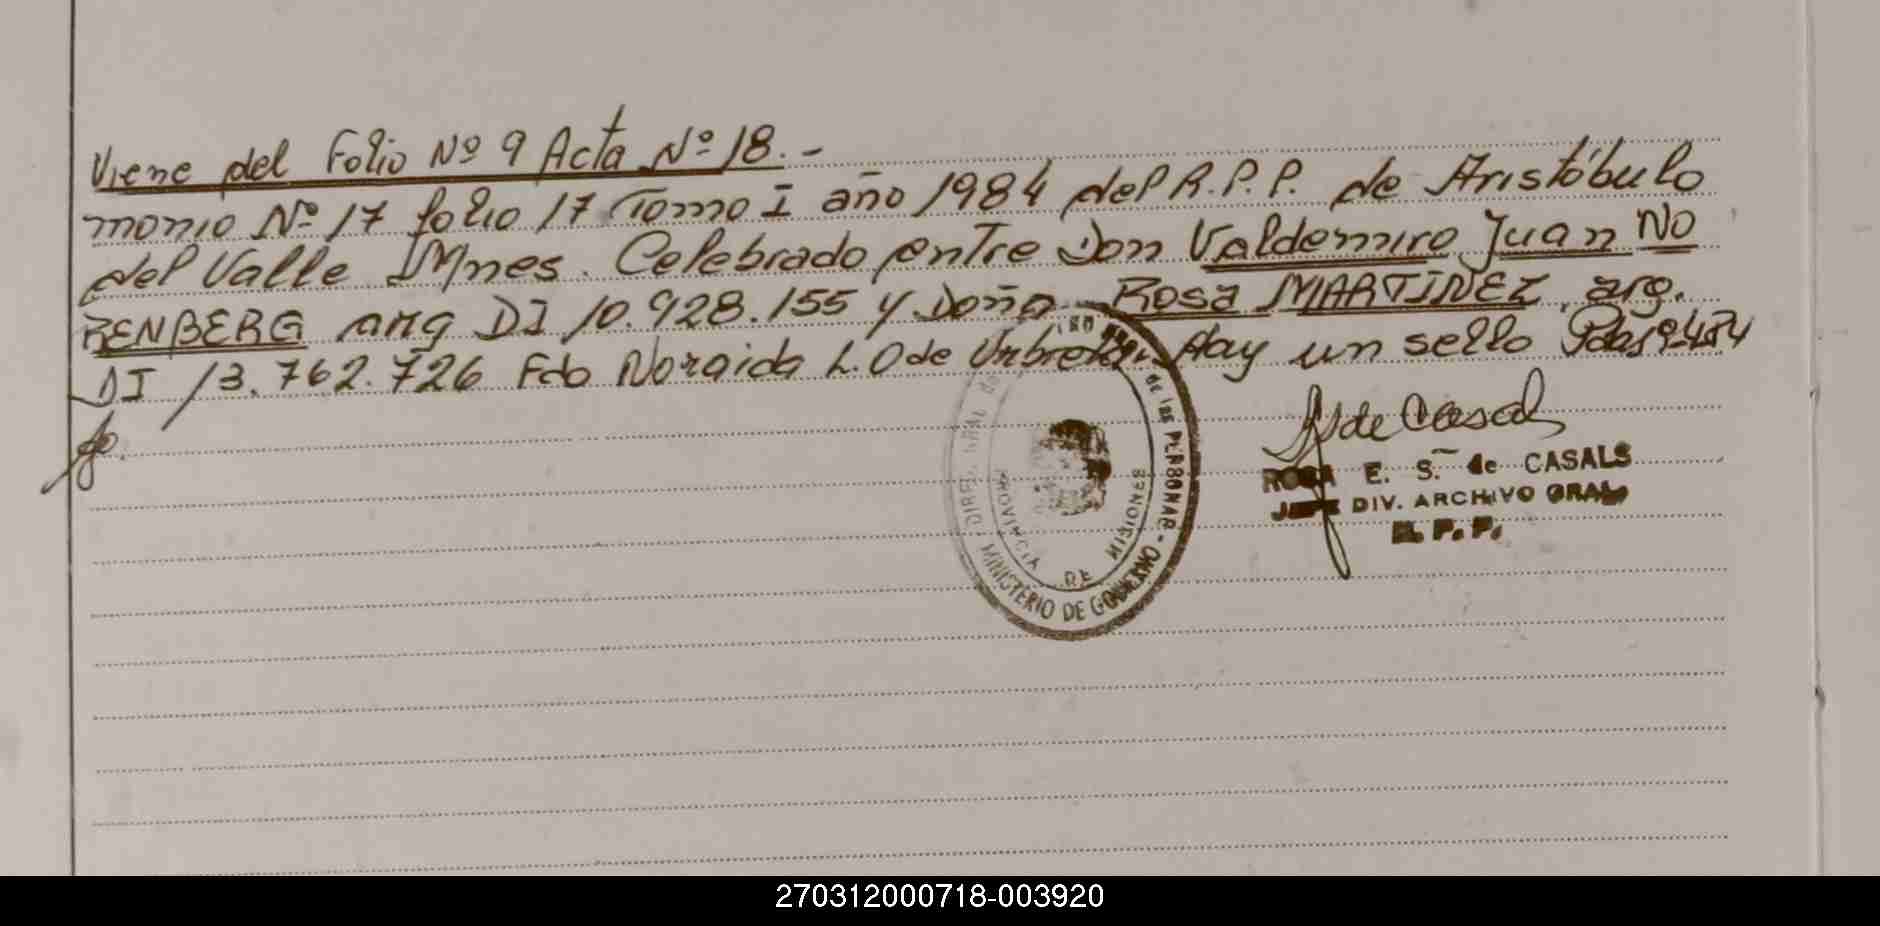 Viene del Folio Nº 9 Acta Nº 18.-
monio Nº 17 folio 17 Tomo I año 1984 del R.P.P. de Aristóbulo
del Valle Mnes. Celebrado entre Don Valdemiro Juan NO
RENBERG arg DI 10.928.155 y Doña Rosa MARTINEZ arg.
DI 13.762.726 Fdo Noraida L. O de Hay un sello Pdas
de Casals
ROSA E. S. de CASALS
JEFE DIV. ARCHIVO GRAL
R. P. P.
de las PERSONAS -
MINISTERIO DE GOBIERNO
PROVINCIA DE MISIONES
270312000718-003920